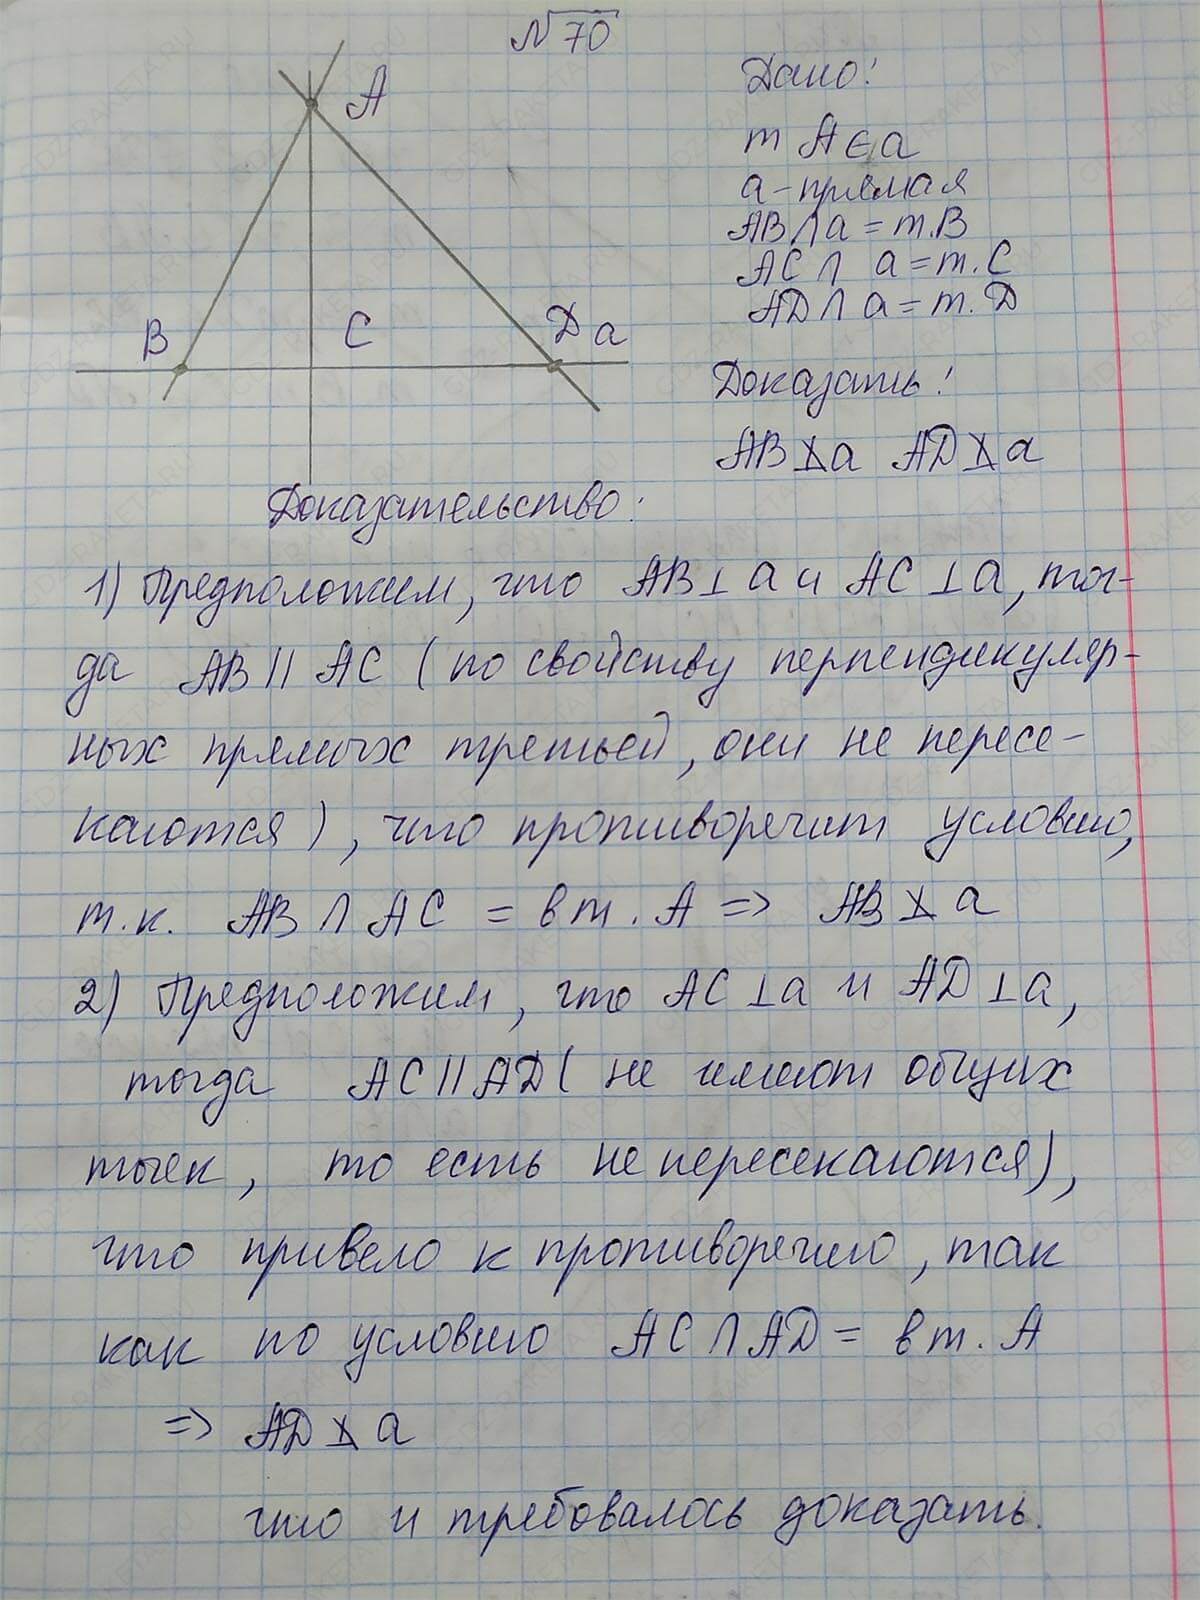 № 70
A
B
C
D a
Дано:
т A ∈ a
a - прямая
AB ∩ a = т.B
AC ∩ a = т.C
AD ∩ a = т.D
Доказать:
AB ⊥̸ a AD ⊥̸ a
Доказательство:
1) Предположим, что AB ⊥ a и AC ⊥ a, тог-
да AB || AC (по свойству перпендикуляр-
ных прямых третьей, они не пересе-
каются), что противоречит условию,
т.к. AB ∩ AC = в т. A => AB ⊥̸ a
2) Предположим, что AC ⊥ a и AD ⊥ a,
тогда AC || AD (не имеют общих
точек, то есть не пересекаются),
что привело к противоречию, так
как по условию AC ∩ AD = в т. A
=> AD ⊥̸ a
что и требовалось доказать.